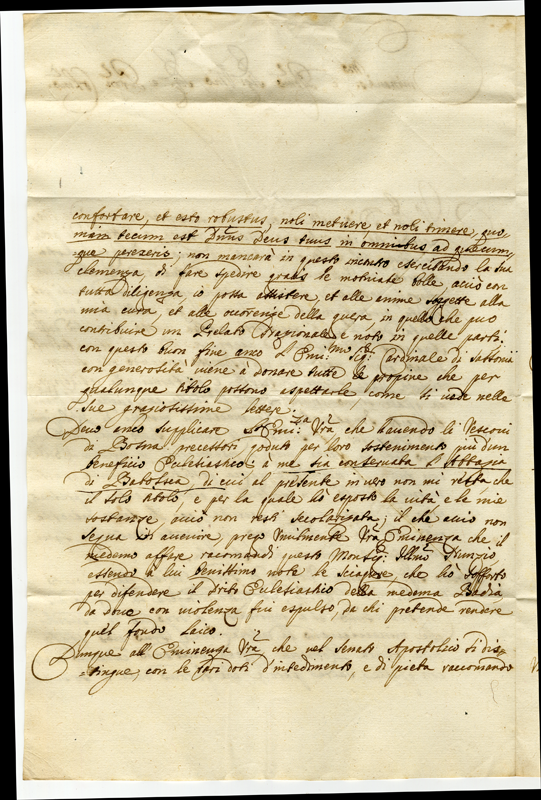 confortare, et esto robustus, noli metuere et noli timere, quo-
niam tecum est Dnus Deus tuus in omnibus ad quæcum-
que perexeris; non mancarà in questo incontro esercitando la sua
clemenza, di fare spedire gratis le motivate bolle, acciò con
tutta diligenza, io possa assistere, et alle anime sogette alla
mia cura, et alle occorenze della guera, in quello che può
contribuire un Prelato Nazionale e noto in quelle parti.
con questo buon fine anco l'Emi:mo Sig: Cardinale di
con generosità viene à donare tutte le propine che per
qualunque titolo possono aspettarle, come si vede nelle
sue praziosissime lettere.
Devo anco supplicare Emi:za Vra che havendo li Vescovi
di Bosna precessori goduto per loro sostenimento più d'un
beneficio Eclesiastico, à me sia conservata l'Abbazia
di, di cui al presente in vero non mi resta che
il solo titolo, e per la quale hò esposto la vita, e le mie
sostanze, acciò non resti secolarizata; il che acciò non
segua di avenire, prego umilmente Vra Eminenza che il
medemo affare racomandi questo Monsig: Illmo Nunzio
essendo à lui benissimo note le sciagure che hò sofferto
per difendere il drito Eclesiastico della medema Badia
da dove con violenza fui espulso, da chi pretende rendere
quel fondo laico.
Dunque all'Eminenza Vra che nel Senato Apostolico si dis-
tingue, con le rari doti d'intedimento, e di pietà raccomando